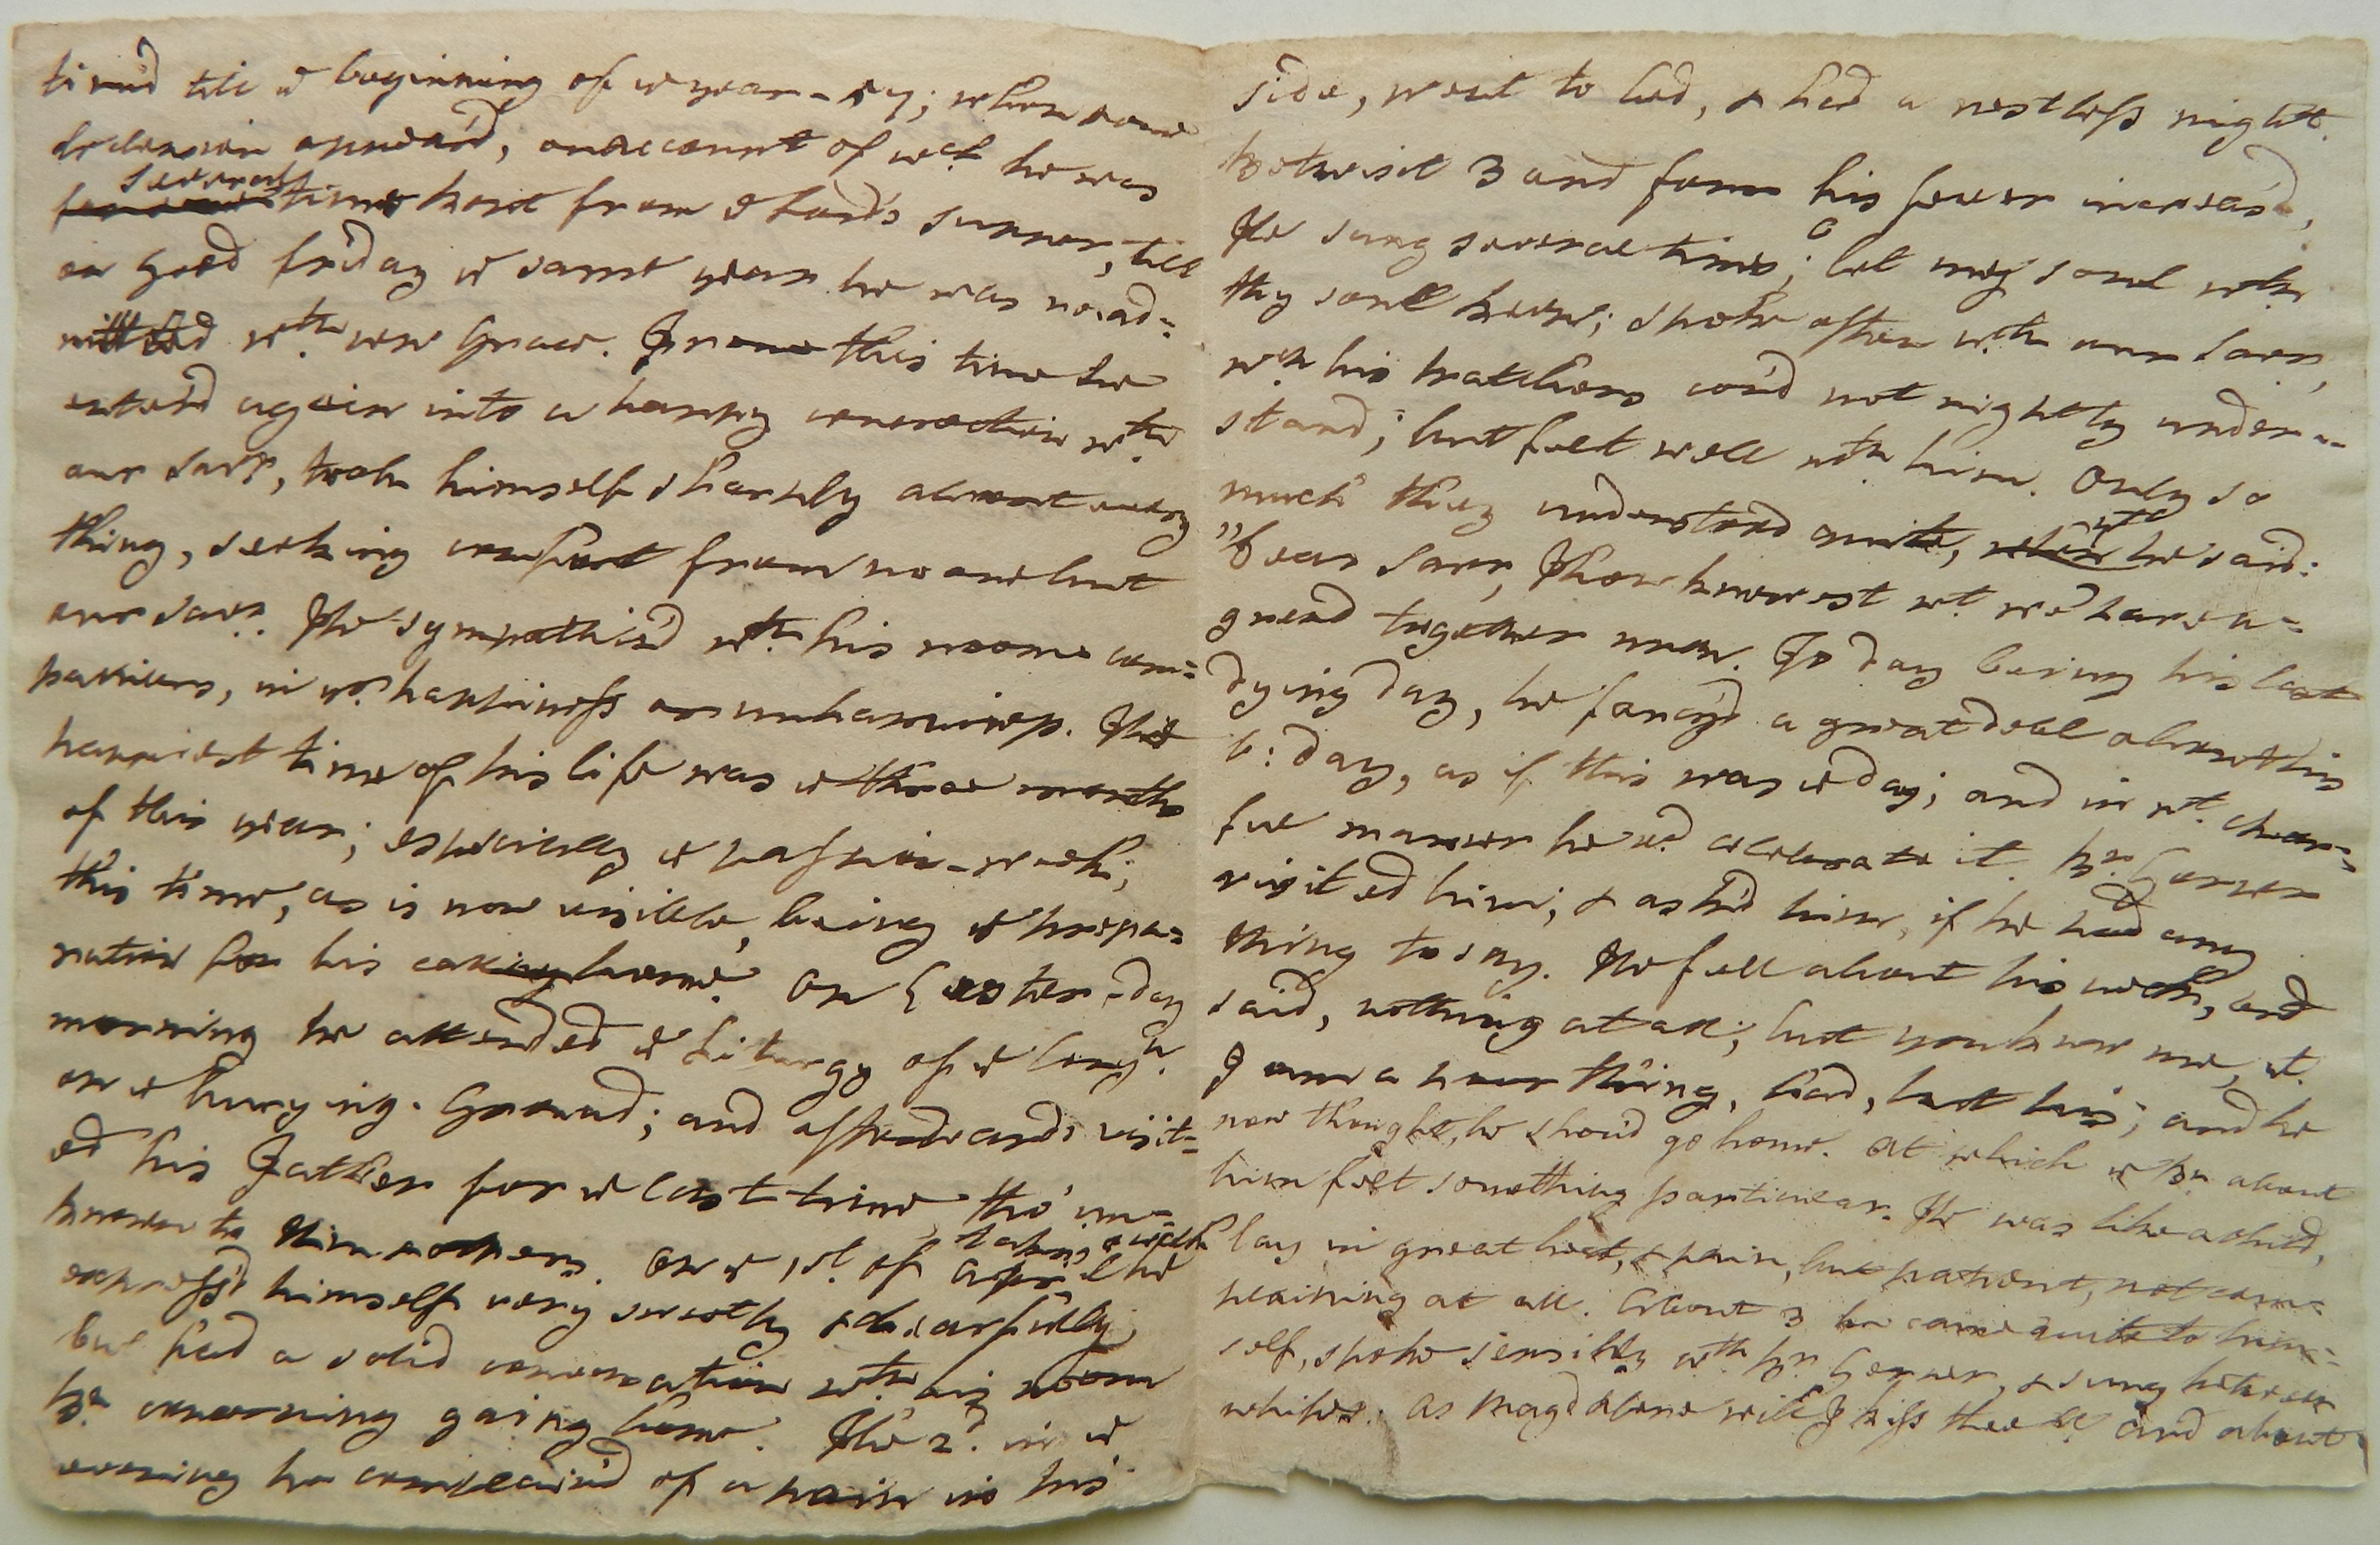 tinu'd till ye beginning of ye year - 59; when some
declension appear'd, on account of wch. he was
several times kept from ye Lord's supper, till
on good friday ye same year he was re-ad=
mitted wth. new Grace. From this time he
enter'd again into a happy connection wth.
our Savr, took himself sharply about every
thing, seeking comfort from no one but
our Savr. He sympathis'd wth. his room com=
panions, in yr. happiness or unhappiness. The
happiest time of his life was ye three months
of this year; especially ye passion-week;
this time, as is now visible, being ye prepa=
ration for his going home. On Easter-day
morning he attended ye Liturgy of ye Congn.
on ye burying-Ground; and afterwards visit=
ed his Father for ye last time, tho' un=
known to him
On ye 1st. of April he
express'd himself very sweetly & chearfully,
but had a solid conversation wth. his room
Brn. concerning going home. The 2d. in ye
evening he complain'd of a pain in his
side, went to bed, & had a restless night.
Betwixt 3 and four his fever increas'd,
He sung several times; O let my soul wth.
thy soul keep; spoke often wth. our Savr,
wch. his watchers cou'd not rightly under=
stand; but felt well wth. him. Only so
much they understood quite, yt. he said:
"Dear Savr, Thou knowest wt. we have a=
greed together now. To day being his last
dying day, he fancy'd a great deal about his
b: day, as if this was ye day; and in wt. chear=
ful manner he wd. celebrate it. Br.
visited him, & ask'd him, if he had any
thing to say. He fell about his neck, and
said, nothing at all; but you know me, yt.
I am a poor thing, bad, but his; and he
now thought, he shou'd go home. At which ye Brn. about
him felt something particular. He was like a child,
lay in great heat, & pain, but patient, not com=
plaining at all. About 3 he came quite to him=
self, spoke sensibly wth. Br. & sung between
whiles: As Magdalene will I kiss thee &c. and about